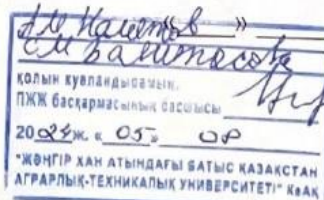 қолын куәландырамын.
ПЖЖ басқармасының басшысы
2024ж. «05» 08
"ЖӘҢГІР ХАН АТЫНДАҒЫ БАТЫС ҚАЗАҚСТАН
АГРАРЛЫҚ-ТЕХНИКАЛЫҚ УНИВЕРСИТЕТІ" КеАҚ